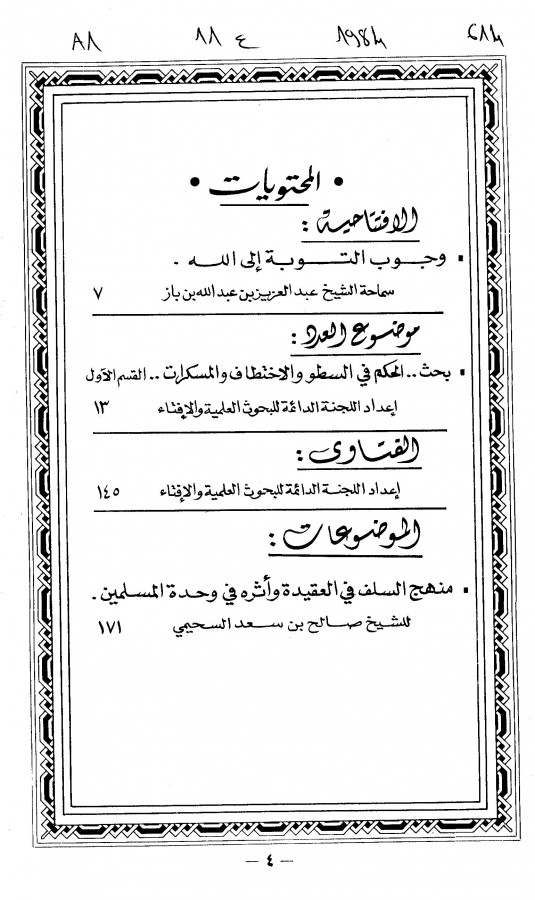 المحتويات
الافتتاحية :
• وجوب التوبة إلى الله .
سماحة الشيخ عبد العزيز بن عبد الله بن باز ٧
موضوع العدد :
• بحث .. الحكم في السطو والاختطاف والمسكرات .. القسم الأول
إعداد اللجنة الدائمة للبحوث العلمية والإفتاء ١٣
الفتاوى :
إعداد اللجنة الدائمة للبحوث العلمية والإفتاء ١٤٥
الموضوعات :
• منهج السلف في العقيدة وأثره في وحدة المسلمين .
للشيخ صالح بن سعد السحيمي ١٧١
— ٤ —